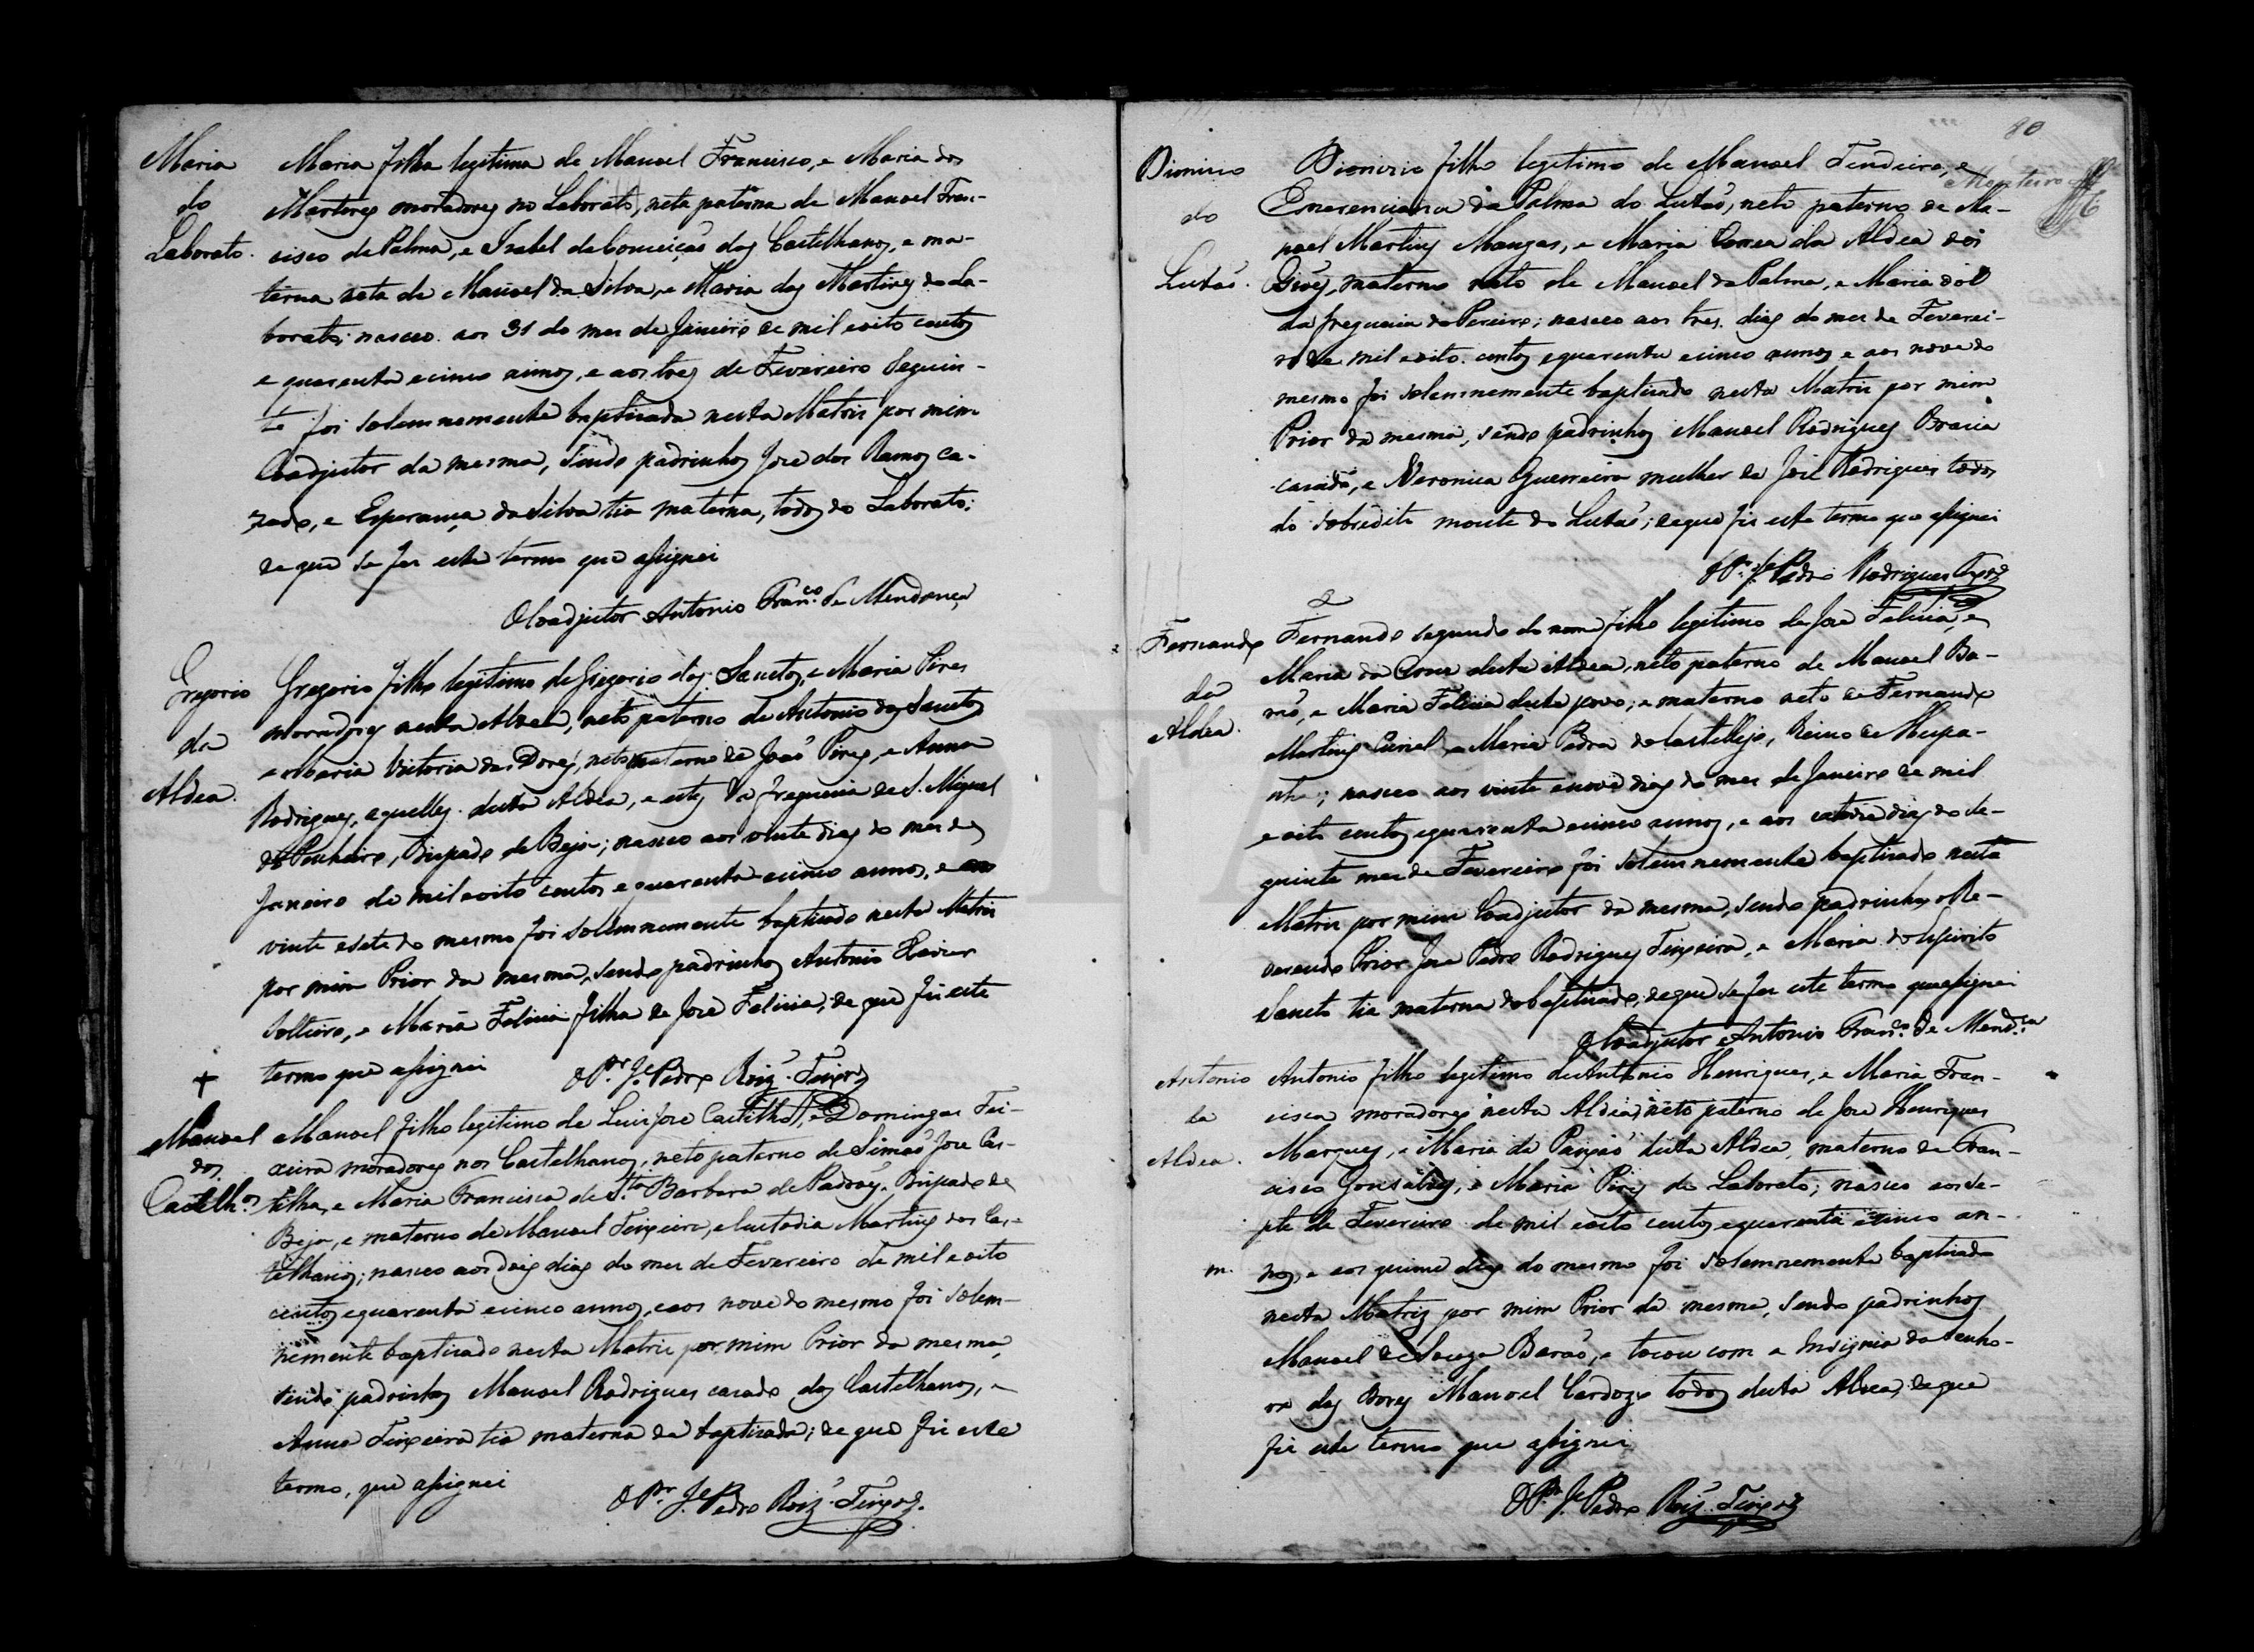 Maria
do
Laborato.
Maria filha legitima de Manoel Francisco, e Maria dos
Martires moradores no Laborato, neta paterna de Manoel Fran-
cisco de Palma, e Izabel da Conceiçaõ dos Castelhanos, e ma-
terna neta de Manoel da Silva, e Maria dos Martires do La-
borato; nasceo aos 31 do mes de Janeiro de mil e oito centos
e quarenta e cinco annos, e aos tres de Fevereiro Seguin-
te foi solemnemente baptizada nesta Matriz por mim
Coadjutor da mesma, sendo padrinhos Joze dos Ramos ca-
zado, e Esperança da Silva tia materna, todos do Laborato;
de que se fez este termo que assignei
O Coadjutor Antonio Fran.co de Mendonça
Gregorio
da
Aldea.
Gregorio filho legitimo de Gregorio dos Sanctos, e Maria Pires
moradores nesta Aldea, neto paterno de Antonio dos Sanctos
e Maria Victoria das Dores, neto materno de Joaõ Pires, e Anna
Rodrigues, aquelles desta Aldea, e estes da freguezia de S. Miguel
do Pinheiro, Bispado de Beja; nasceo aos vinte dias do mes de
Janeiro de mil e oito centos e quarenta e cinco annos, e aos
vinte e sete do mesmo foi solemnemente baptizado nesta Matriz
por mim Prior da mesma, sendo padrinhos Antonio Xavier
solteiro, e Maria Felicia filha de Joze Felicia, de que fiz este
termo que assignei
O P.or J.e Pedro Roiz Teixr.a
+
Manoel
dos
Castelh.os
Manoel filho legitimo de Luis Joze Castilho, e Domingas Tei-
xeira moradores nos Castelhanos, neto paterno de Simaõ Joze Cas-
tilho, e Maria Francisca de S.ta Barbara de Padroẽs, Bispado de
Beja, e materno de Manoel Teixeira, e Custodia Martins dos Cas-
telhanos; nasceo aos dois dias do mes de Fevereiro de mil e oito
centos e quarenta e cinco annos, e aos nove do mesmo foi solem-
nemente baptizado nesta Matriz por mim Prior da mesma,
sendo padrinhos Manoel Rodrigues casado dos Castelhanos, e
Anna Teixeira tia materna da baptizada; de que fiz este
termo, que assignei
O P.or J.e Pedro Roiz Teixr.a
80
Monteiro
Dionizio
do
Lutaõ.
Dionizio filho legitimo de Manoel Tendeiro, e
Emerenciana da Palma do Lutaõ, neto paterno de Ma-
noel Martins Mangas, e Maria Correa da Aldea dos
materno neto de Manoel da Palma, e Maria
da freguezia do Pereiro; nasceo aos tres dias do mes de Feverei-
ro de mil e oito centos e quarenta e cinco annos e aos nove do
mesmo foi solemnemente baptizado nesta Matriz por mim
Prior da mesma, sendo padrinhos Manoel Rodrigues
casado, e Veronica Guerreira mulher de Joze Rodrigues todos
do sobredito monte do Lutaõ; de que fiz este termo que assignei
O P.or J.e Pedro Rodrigues Teixr.a
Fernando
da
Aldea.
2
Fernando segundo do nome filho legitimo de Joze Felicia, e
Maria da Cruz desta Aldea, neto paterno de Manoel Ba-
raõ, e Maria Felicia deste povo; e materno neto de Fernando
Martins Curiel, e Maria Pedra do Castillejo, Reino de Hespa-
nha; nasceo aos vinte e nove dias do mes de Janeiro de mil
e oito centos e quarenta e cinco annos, e aos catorze dias do se-
guinte mes de Fevereiro foi solemnemente baptizado nesta
Matriz por mim Coadjutor da mesma, sendo padrinhos o Re-
verendo Prior Joze Pedro Rodrigues Teixeira, e Maria do Espirito
Sancto tia materna do baptizado; de que se fez este termo que assignei
O Coadjutor Antonio Fran.co de Mend.ca
Antonio
da
Aldea.
m.
Antonio filho legitimo de Antonio Henriques, e Maria Fran-
cisca moradores nesta Aldea, neto paterno de Joze Henriques
Marques, e Maria da Paixaõ desta Aldea, materno de Fran-
cisco Gonsalves, e Maria Pires do Laborato; nasceo aos se-
pte de Fevereiro de mil e oito centos e quarenta e cinco an-
nos, e aos quinze dias do mesmo foi solemnemente baptizado
nesta Matriz por mim Prior da mesma, sendo padrinhos
Manoel de Souza Baraõ, e tocou com a Insignia da Senho-
ra das Dores Manoel Cardozo todos desta Aldea, de que
fiz este termo que assignei
O P.or J.e Pedro Roiz Teixr.a